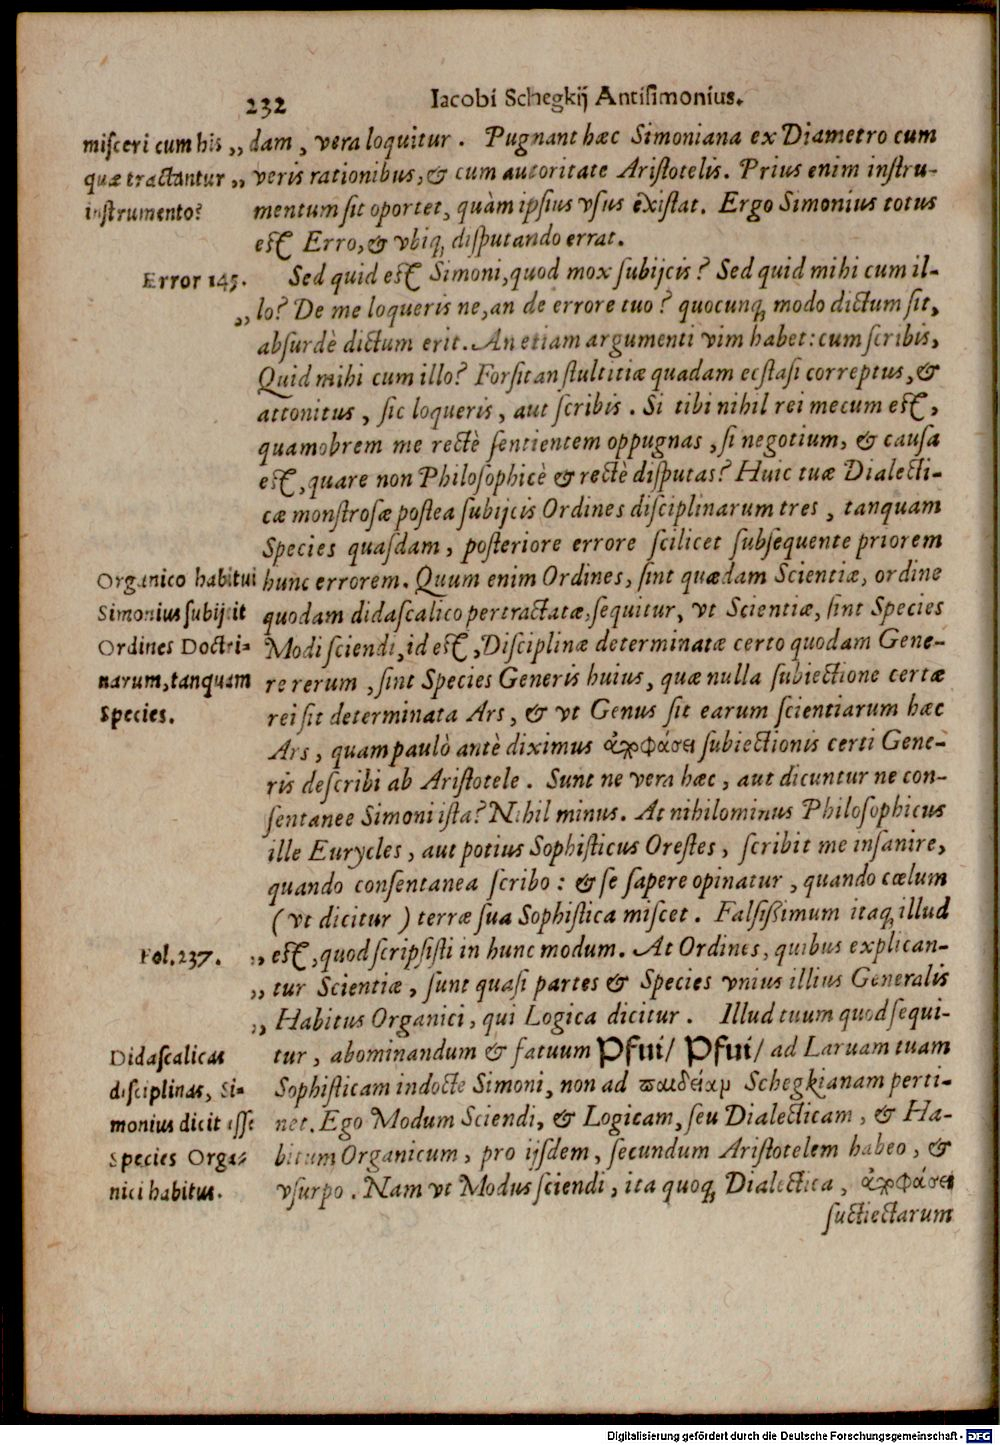 232 Iacobi Schegkij Antisimonius.
misceri cum his
quæ tractantur
instrumento?
„ dam, vera loquitur. Pugnant hæc Simoniana ex Diametro cum
„ veris rationibus, & cum autoritate Aristotelis. Prius enim instru-
mentum sit oportet, quàm ipsius vsus existat. Ergo Simonius totus
est Erro, & vbiq; disputando errat.
Error 145.
Sed quid est Simoni, quod mox subijcis? Sed quid mihi cum il-
„ lo? De me loqueris ne, an de errore tuo? quocunq; modo dictum sit,
absurdè dictum erit. An etiam argumenti vim habet: cum scribis,
Quid mihi cum illo? Forsitan stultitiæ quadam ecstasi correptus, &
attonitus, sic loqueris, aut scribis. Si tibi nihil rei mecum est,
quamobrem me rectè sentientem oppugnas, si negotium, & causa
est, quare non Philosophicè & rectè disputas? Huic tuæ Dialecti-
cæ monstrosæ postea subijcis Ordines disciplinarum tres, tanquam
Species quasdam, posteriore errore scilicet subsequente priorem
Organico habitui
Simonius subijcit
Ordines Doctri-
narum, tanquam
Species.
hunc errorem. Quum enim Ordines, sint quædam Scientiæ, ordine
quodam didascalico pertractatæ, sequitur, vt Scientiæ, sint Species
Modi sciendi, id est, Disciplinæ determinatæ certo quodam Gene-
re rerum, sint Species Generis huius, quæ nulla subiectione certæ
rei sit determinata Ars, & vt Genus sit earum scientiarum hæc
Ars, quam paulò antè diximus ἀποφάσει subiectionis certi Gene-
ris describi ab Aristotele. Sunt ne vera hæc, aut dicuntur ne con-
sentanee Simoni ista? Nihil minus. At nihilominus Philosophicus
ille Eurycles, aut potius Sophisticus Orestes, scribit me insanire,
quando consentanea scribo: & se sapere opinatur, quando cœlum
(vt dicitur) terræ sua Sophistica miscet. Falsißimum itaq; illud
Fol. 237.
„ est, quod scripsisti in hunc modum. At Ordines, quibus explican-
„ tur Scientiæ, sunt quasi partes & Species vnius illius Generalis
„ Habitus Organici, qui Logica dicitur. Illud tuum quod sequi-
Didascalicas
disciplinas, Si-
monius dicit esse
species Orga-
nici habitus.
tur, abominandum & fatuum Pfui/ Pfui/ ad Laruam tuam
Sophisticam indocte Simoni, non ad παιδείαν Schegkianam perti-
net. Ego Modum Sciendi, & Logicam, seu Dialecticam, & Ha-
bitum Organicum, pro ijsdem, secundum Aristotelem habeo, &
vsurpo. Nam vt Modus sciendi, ita quoq; Dialectica, ἀποφάσει
suctiectarum
Digitalisierung gefördert durch die Deutsche Forschungsgemeinschaft - DFG